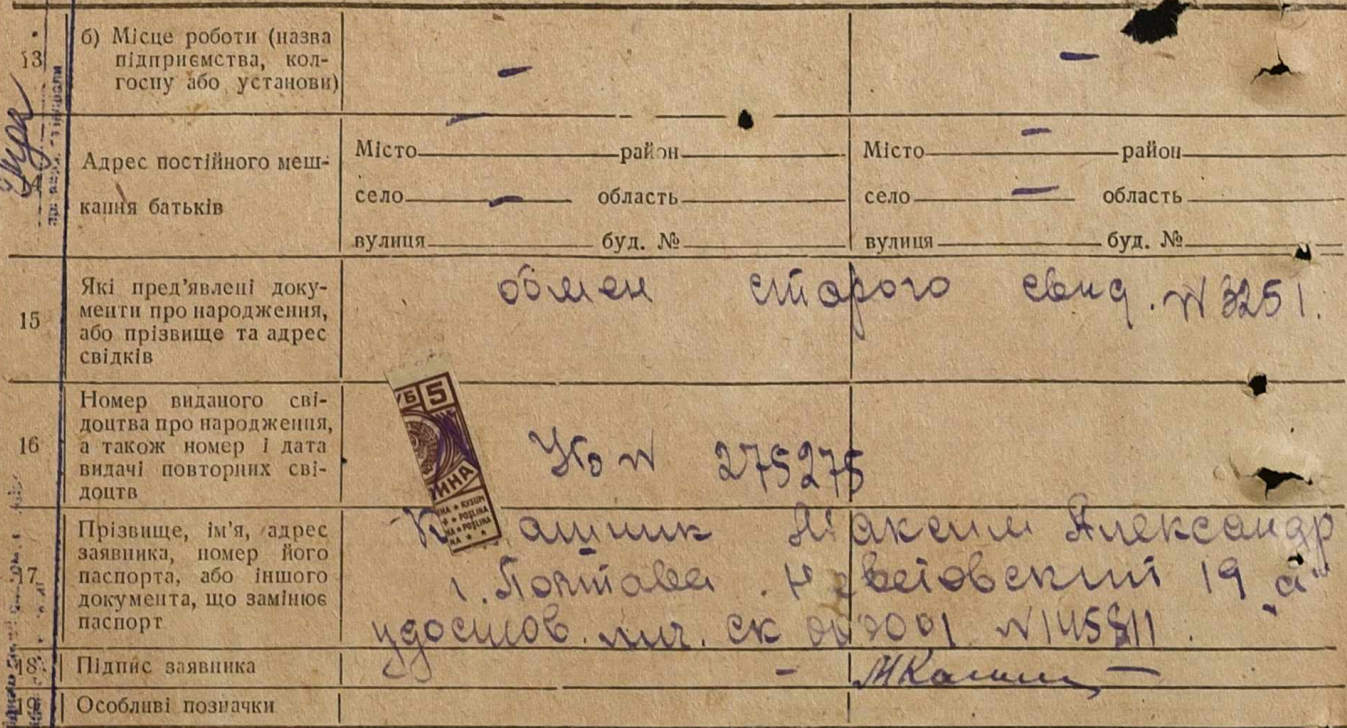 13
б) Місце роботи (назва
підприємства, кол-
госпу або установи)
—
—
Адрес постійного меш-
кання батьків
Місто — район
село — область
вулиця буд. №
Місто — район
село — область
вулиця буд. №
15
Які пред’явлені доку-
менти про народження,
або прізвище та адрес
свідків
обмен старого свид. N 3251.
16
Номер виданого сві-
доцтва про народження,
а також номер і дата
видачі повторних сві-
доцтв
5
N 275275
17
Прізвище, ім’я, адрес
заявника, номер його
паспорта, або іншого
документа, що замінює
паспорт
Максим Александр
г. Полтава 19 "а"
удостов. лич. N 145811.
18
Підпис заявника
—
19
Особливі позначки